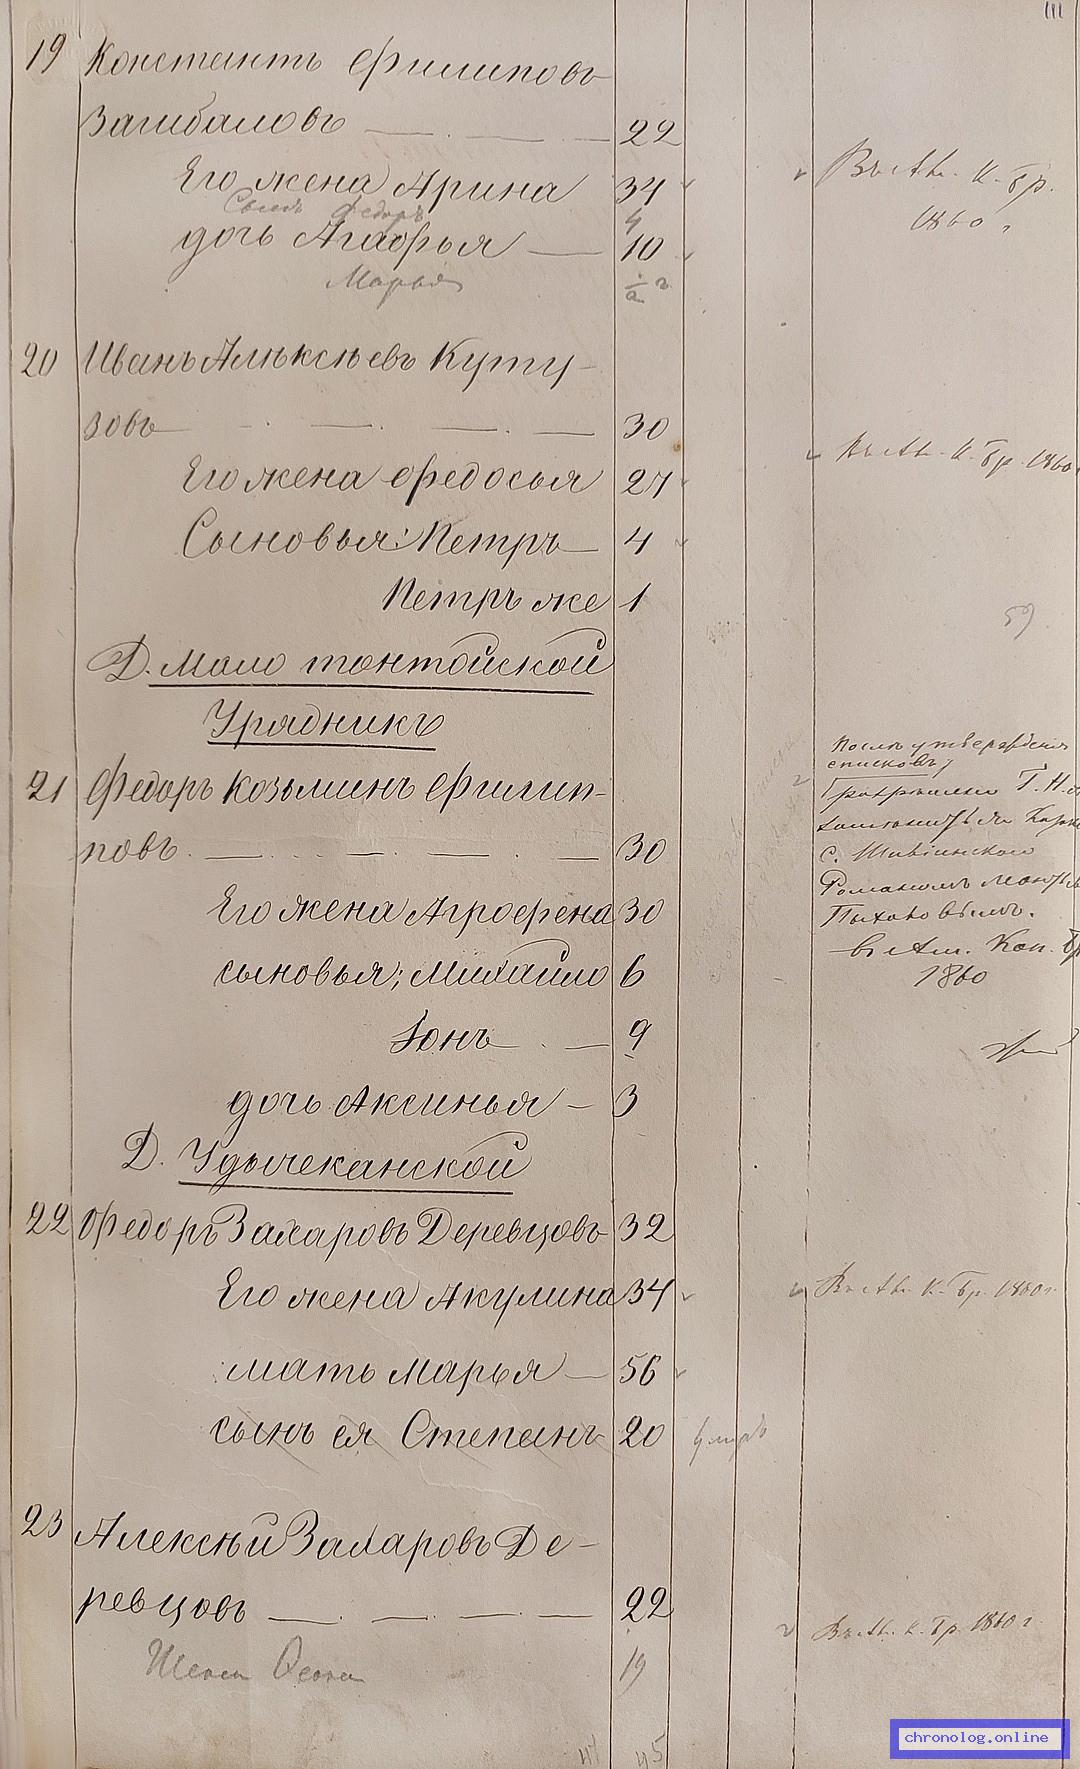 111
19 Константъ Филиповъ
Загибаловъ 22
Его жена Арина 34
Сынъ Федоръ 4
дочь Агафья 10
Марья 1/2
Въ Ам. К. Бр.
1860
20 Иванъ Алѣксѣевъ Куту-
зовъ 30
Его жена Федосья 27
Сыновья: Петръ 4
Петръ же 1
Въ Ам. К. Бр. 1860
59
Д. Мало тонтойской
Урядникъ
21 Федоръ Козьминъ Филип-
повъ 30
Его жена Агрофена 30
сыновья; Михайло 6
Іонъ 9
дочь Аксинья 3
Послѣ утвержденія
списковъ
с.
Романомъ
Пьховымъ.
въ Ам. Кон. Бр
1860
Д. Удычеканской
22 Федоръ Захаровъ Деревцовъ 32
Его жена Акулина 34
мать Марья 56
сынъ ея Степанъ 20 умеръ
Въ Ам. К. Бр. 1860 г.
23 Алексѣй Захаровъ Де-
ревцовъ 22
Жена 19
Въ Ам. К. Бр. 1860 г.
44 45
chronolog.online